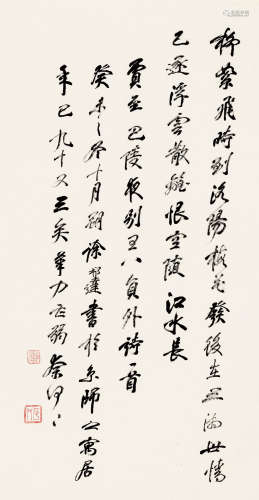 柳絮飛時別洛陽梅花發後在三湘世情
已逐浮雲散離恨空隨江水長
賈至巴陵夜別王八員外詩一首
癸未之冬十月徐邦達書於京師寓居
年已九十又三矣筆力益弱奈何々